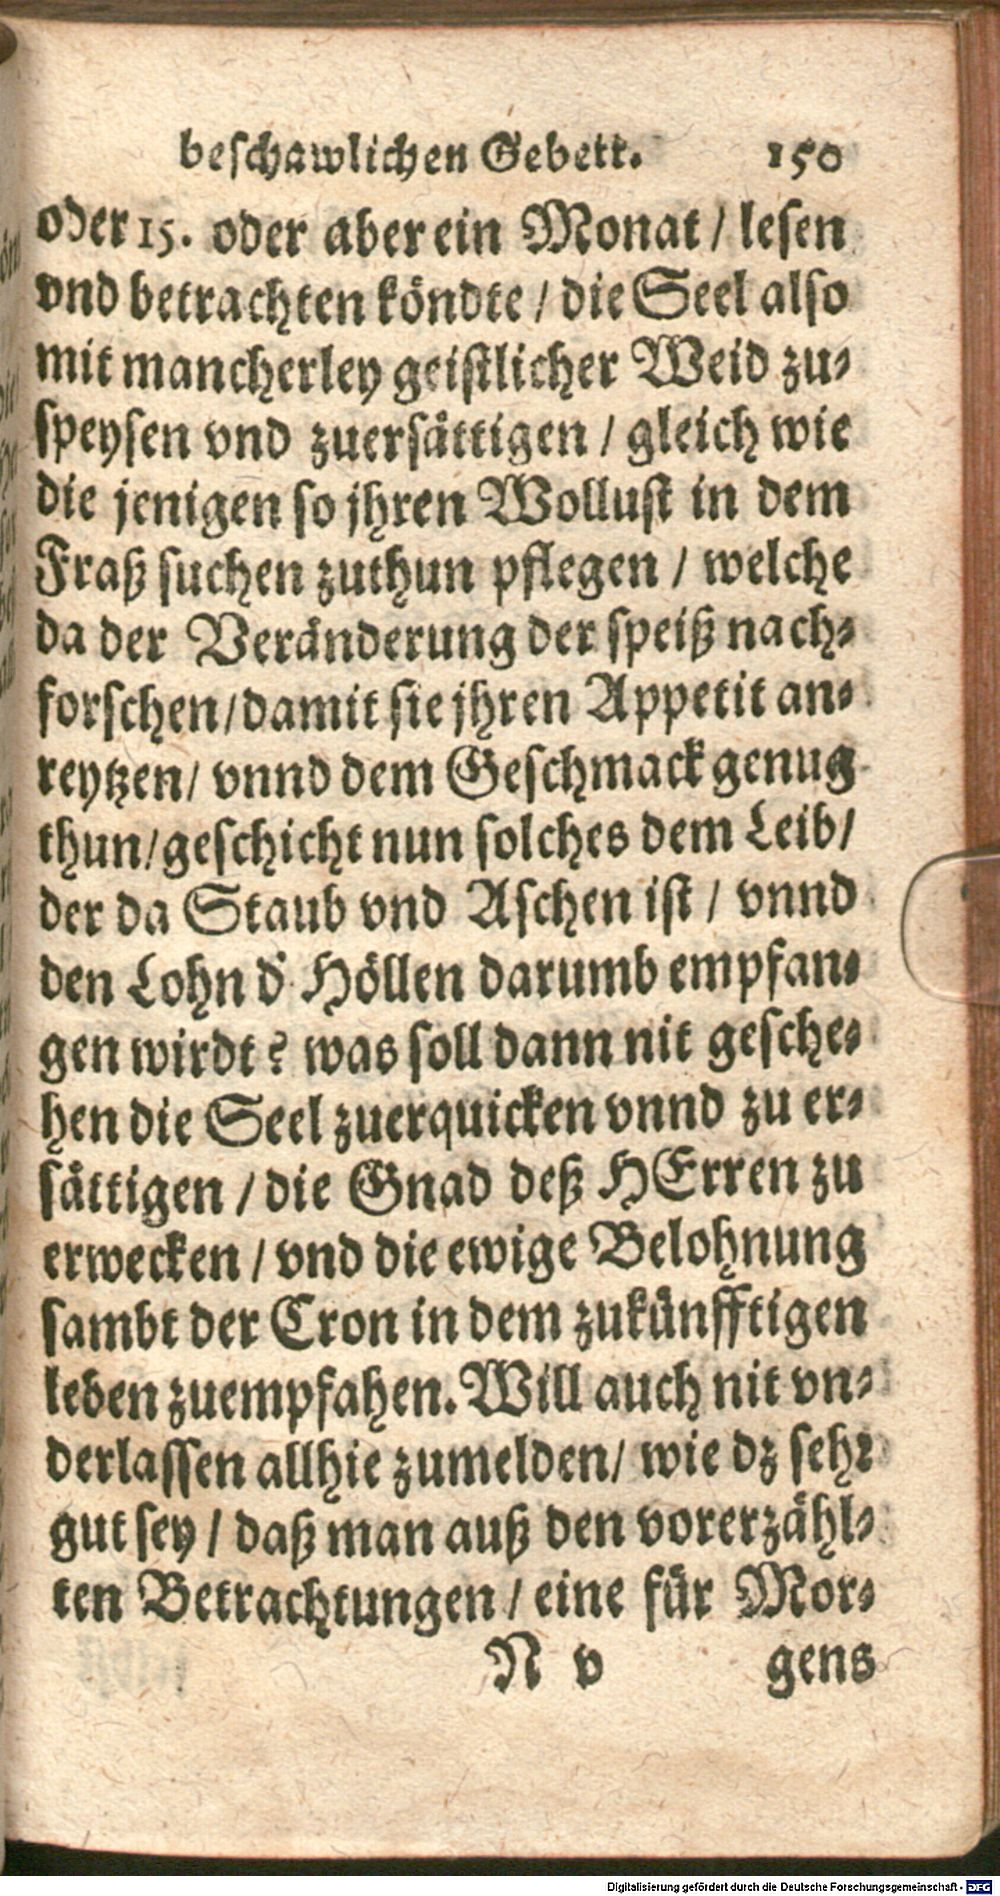 beschawlichen Gebett. 150
oder 15. oder aber ein Monat / lesen
vnd betrachten köndte / die Seel also
mit mancherley geistlicher Weid zu-
speysen vnd zuersättigen / gleich wie
die jenigen so jhren Wollust in dem
Fraß suchen zuthun pflegen / welche
da der Veränderung der speiß nach-
forschen / damit sie jhren Appetit an-
reytzen / vnnd dem Geschmack genug
thun / geschicht nun solches dem Leib /
der da Staub vnd Aschen ist / vnnd
den Lohn d' Höllen darumb empfan-
gen wirdt? was soll dann nit gesche-
hen die Seel zuerquicken vnnd zu er-
sättigen / die Gnad deß HErren zu
erwecken / vnd die ewige Belohnung
sambt der Cron in dem zukünfftigen
leben zuempfahen. Will auch nit vn-
derlassen allhie zumelden / wie dz sehr
gut sey / daß man auß den vorerzähl-
ten Betrachtungen / eine für Mor-
N v gens
Digitalisierung gefördert durch die Deutsche Forschungsgemeinschaft - DFG